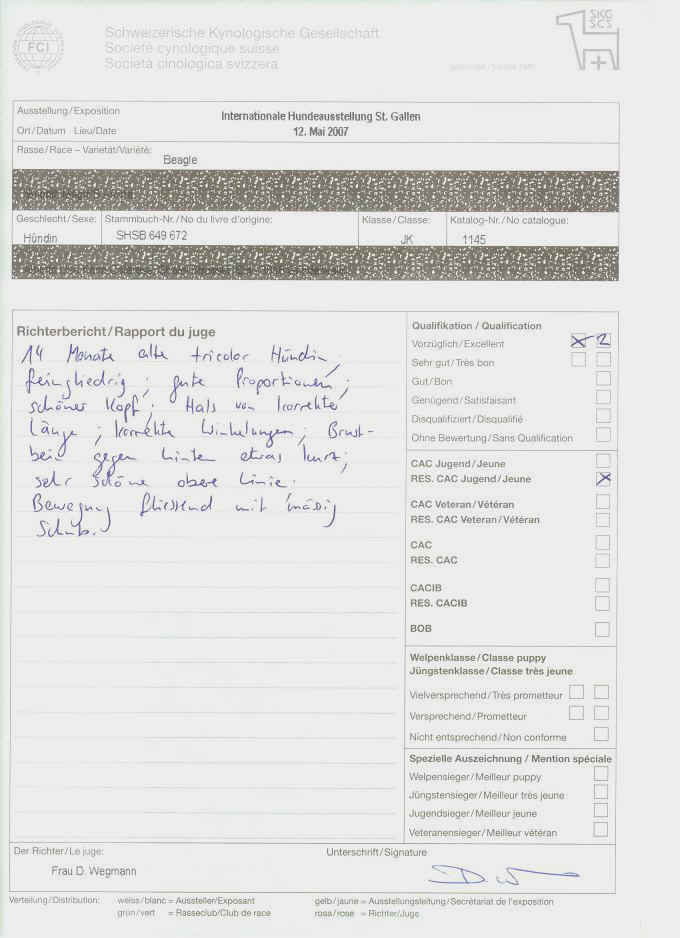 FCI
Schweizerische Kynologische Gesellschaft
Société cynologique suisse
Società cinologica svizzera
SKG
SCS
Ausstellung/Exposition
Internationale Hundeausstellung St. Gallen
Ort/Datum Lieu/Date
12. Mai 2007
Rasse/Race – Varietät/Variété:
Beagle
Geschlecht/Sexe:
Stammbuch-Nr./No du livre d'origine:
Klasse/Classe:
Katalog-Nr./No catalogue:
Hündin
SHSB 649 672
JK
1145
Richterbericht/Rapport du juge
14 Monate alte tricolor Hündin;
feingliedrig; gute Proportionen;
schöner Kopf; Hals von korrekte
Länge; korrekte Winkelungen; Brust-
bein gegen hinten etwas kurz;
sehr schöne obere Linie.
Bewegung fliessend mit mässig
Schub.
Qualifikation / Qualification
Vorzüglich/Excellent X 2
Sehr gut/Très bon
Gut/Bon
Genügend/Satisfaisant
Disqualifiziert/Disqualifié
Ohne Bewertung/Sans Qualification
CAC Jugend/Jeune
RES. CAC Jugend/Jeune X
CAC Veteran/Vétéran
RES. CAC Veteran/Vétéran
CAC
RES. CAC
CACIB
RES. CACIB
BOB
Welpenklasse/Classe puppy
Jüngstenklasse/Classe très jeune
Vielversprechend/Très prometteur
Versprechend/Prometteur
Nicht entsprechend/Non conforme
Spezielle Auszeichnung / Mention spéciale
Welpensieger/Meilleur puppy
Jüngstensieger/Meilleur très jeune
Jugendsieger/Meilleur jeune
Veteranensieger/Meilleur vétéran
Der Richter/Le juge:
Unterschrift/Signature
Frau D. Wegmann
Verteilung/Distribution:
weiss/blanc = Aussteller/Exposant
gelb/jaune = Ausstellungsleitung/Secrétariat de l'exposition
grün/vert = Rasseclub/Club de race
rosa/rose = Richter/Juge